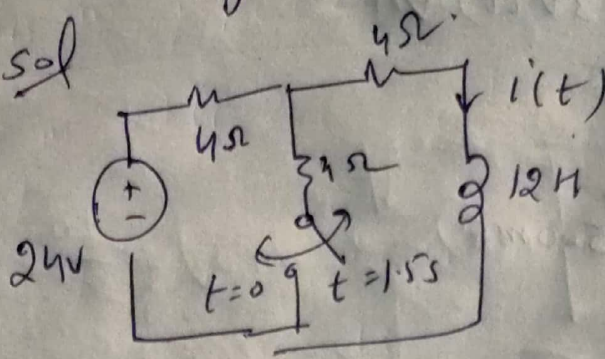 sol
4Ω
i(t)
4Ω
4Ω
12H
+
-
24V
t=0
t=1.5s